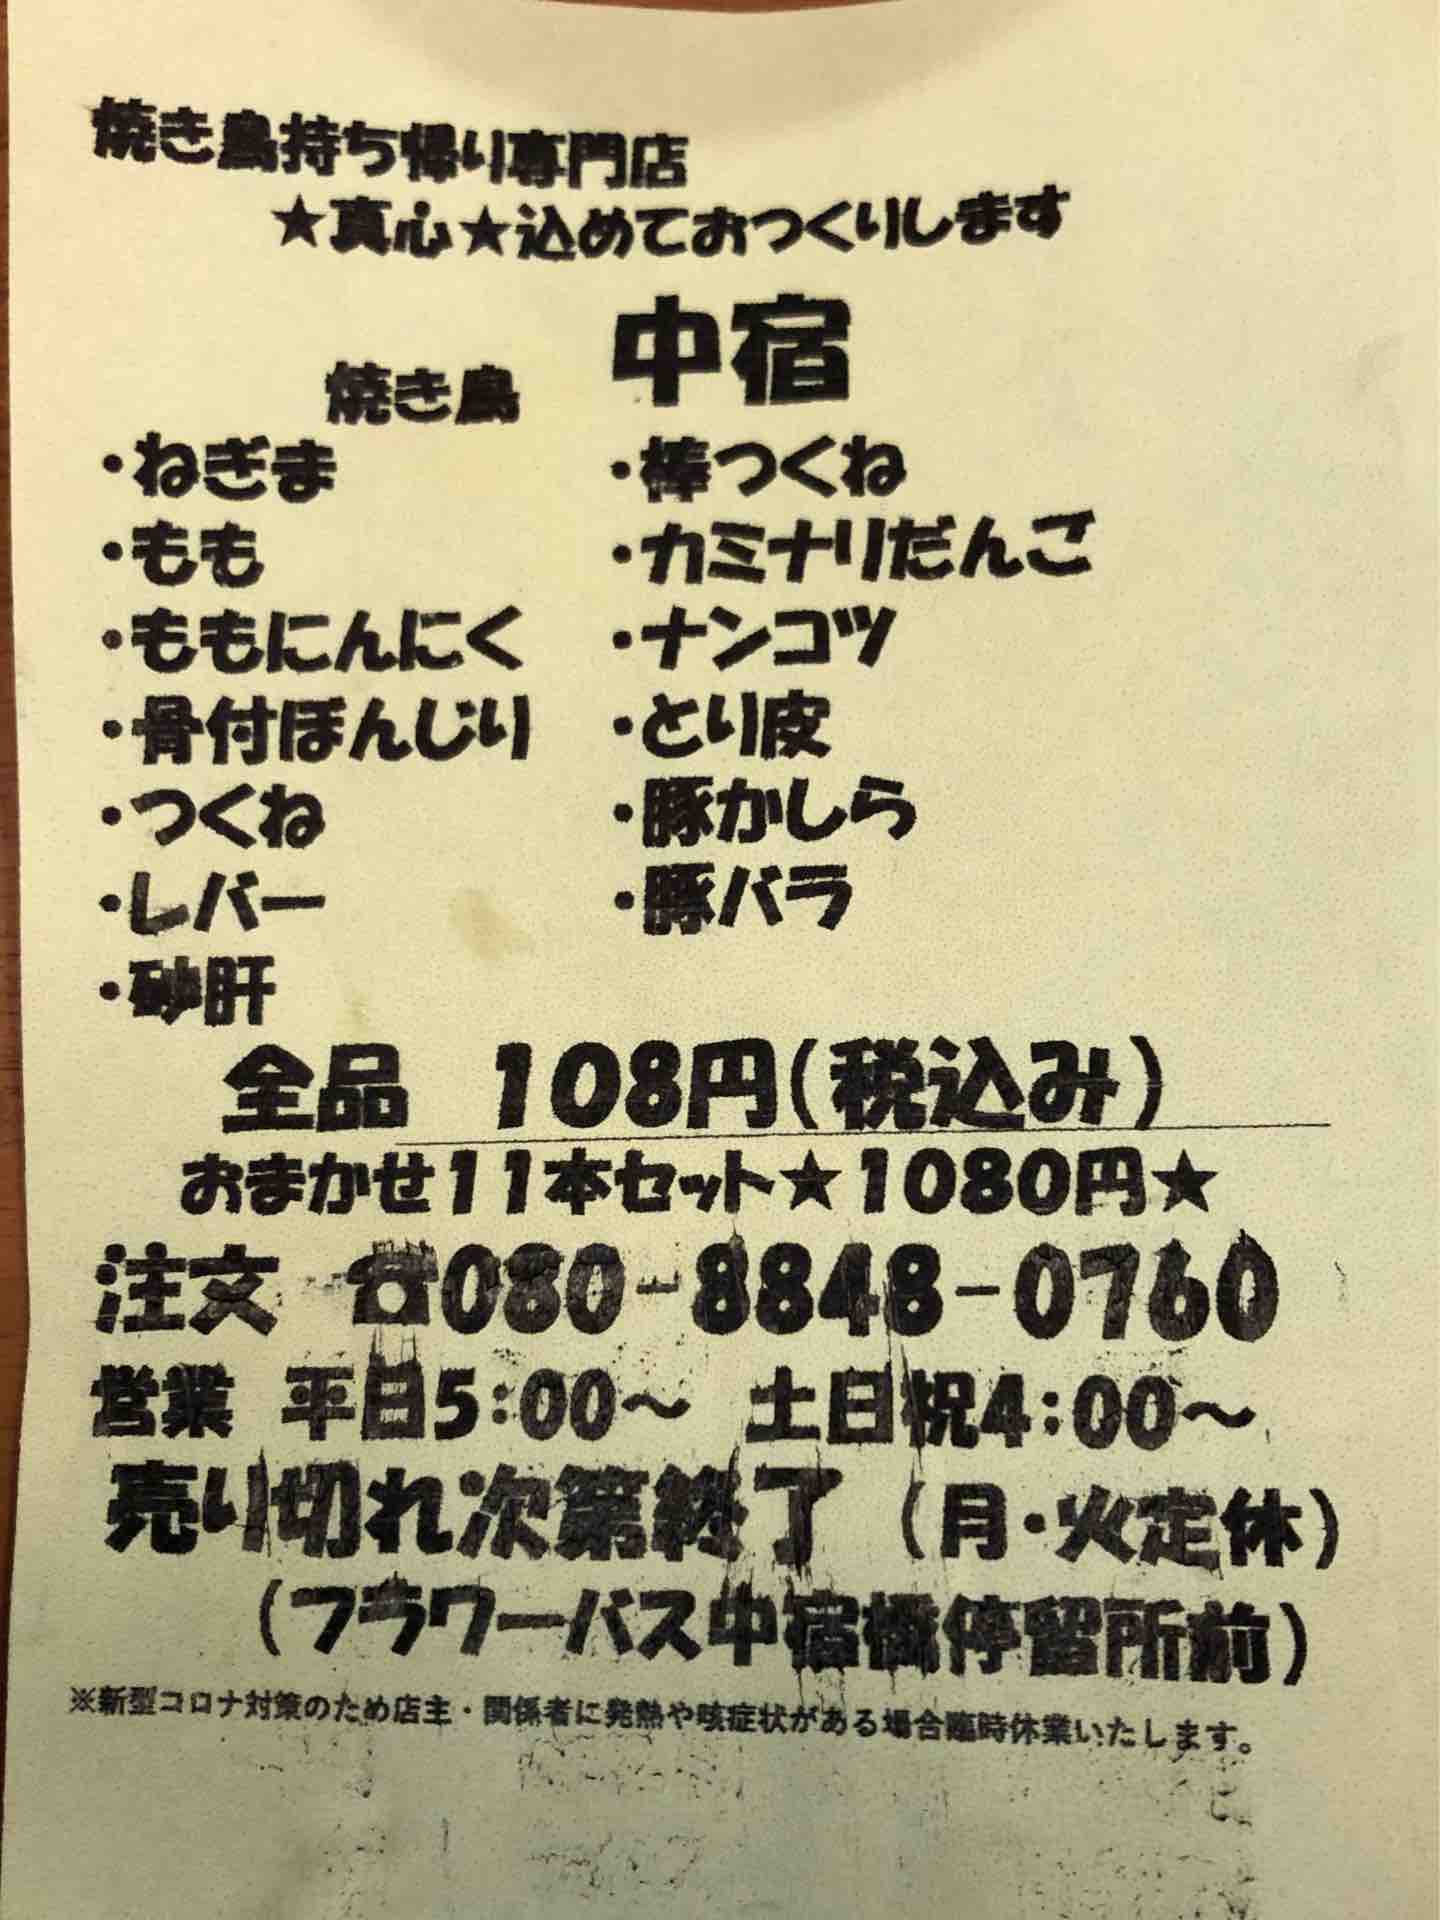 焼き鳥持ち帰り専門店
★真心★込めておつくりします
焼き鳥 中宿
・ねぎま ・棒つくね
・もも ・カミナリだんご
・ももにんにく ・ナンコツ
・骨付ぼんじり ・とり皮
・つくね ・豚かしら
・レバー ・豚バラ
・砂肝
全品 108円(税込み)
おまかせ11本セット★1080円★
注文 ☎080-8848-0760
営業 平日5:00～ 土日祝4:00～
売り切れ次第終了 (月・火定休)
(フラワーバス中宿橋停留所前)
※新型コロナ対策のため店主・関係者に発熱や咳症状がある場合臨時休業いたします。